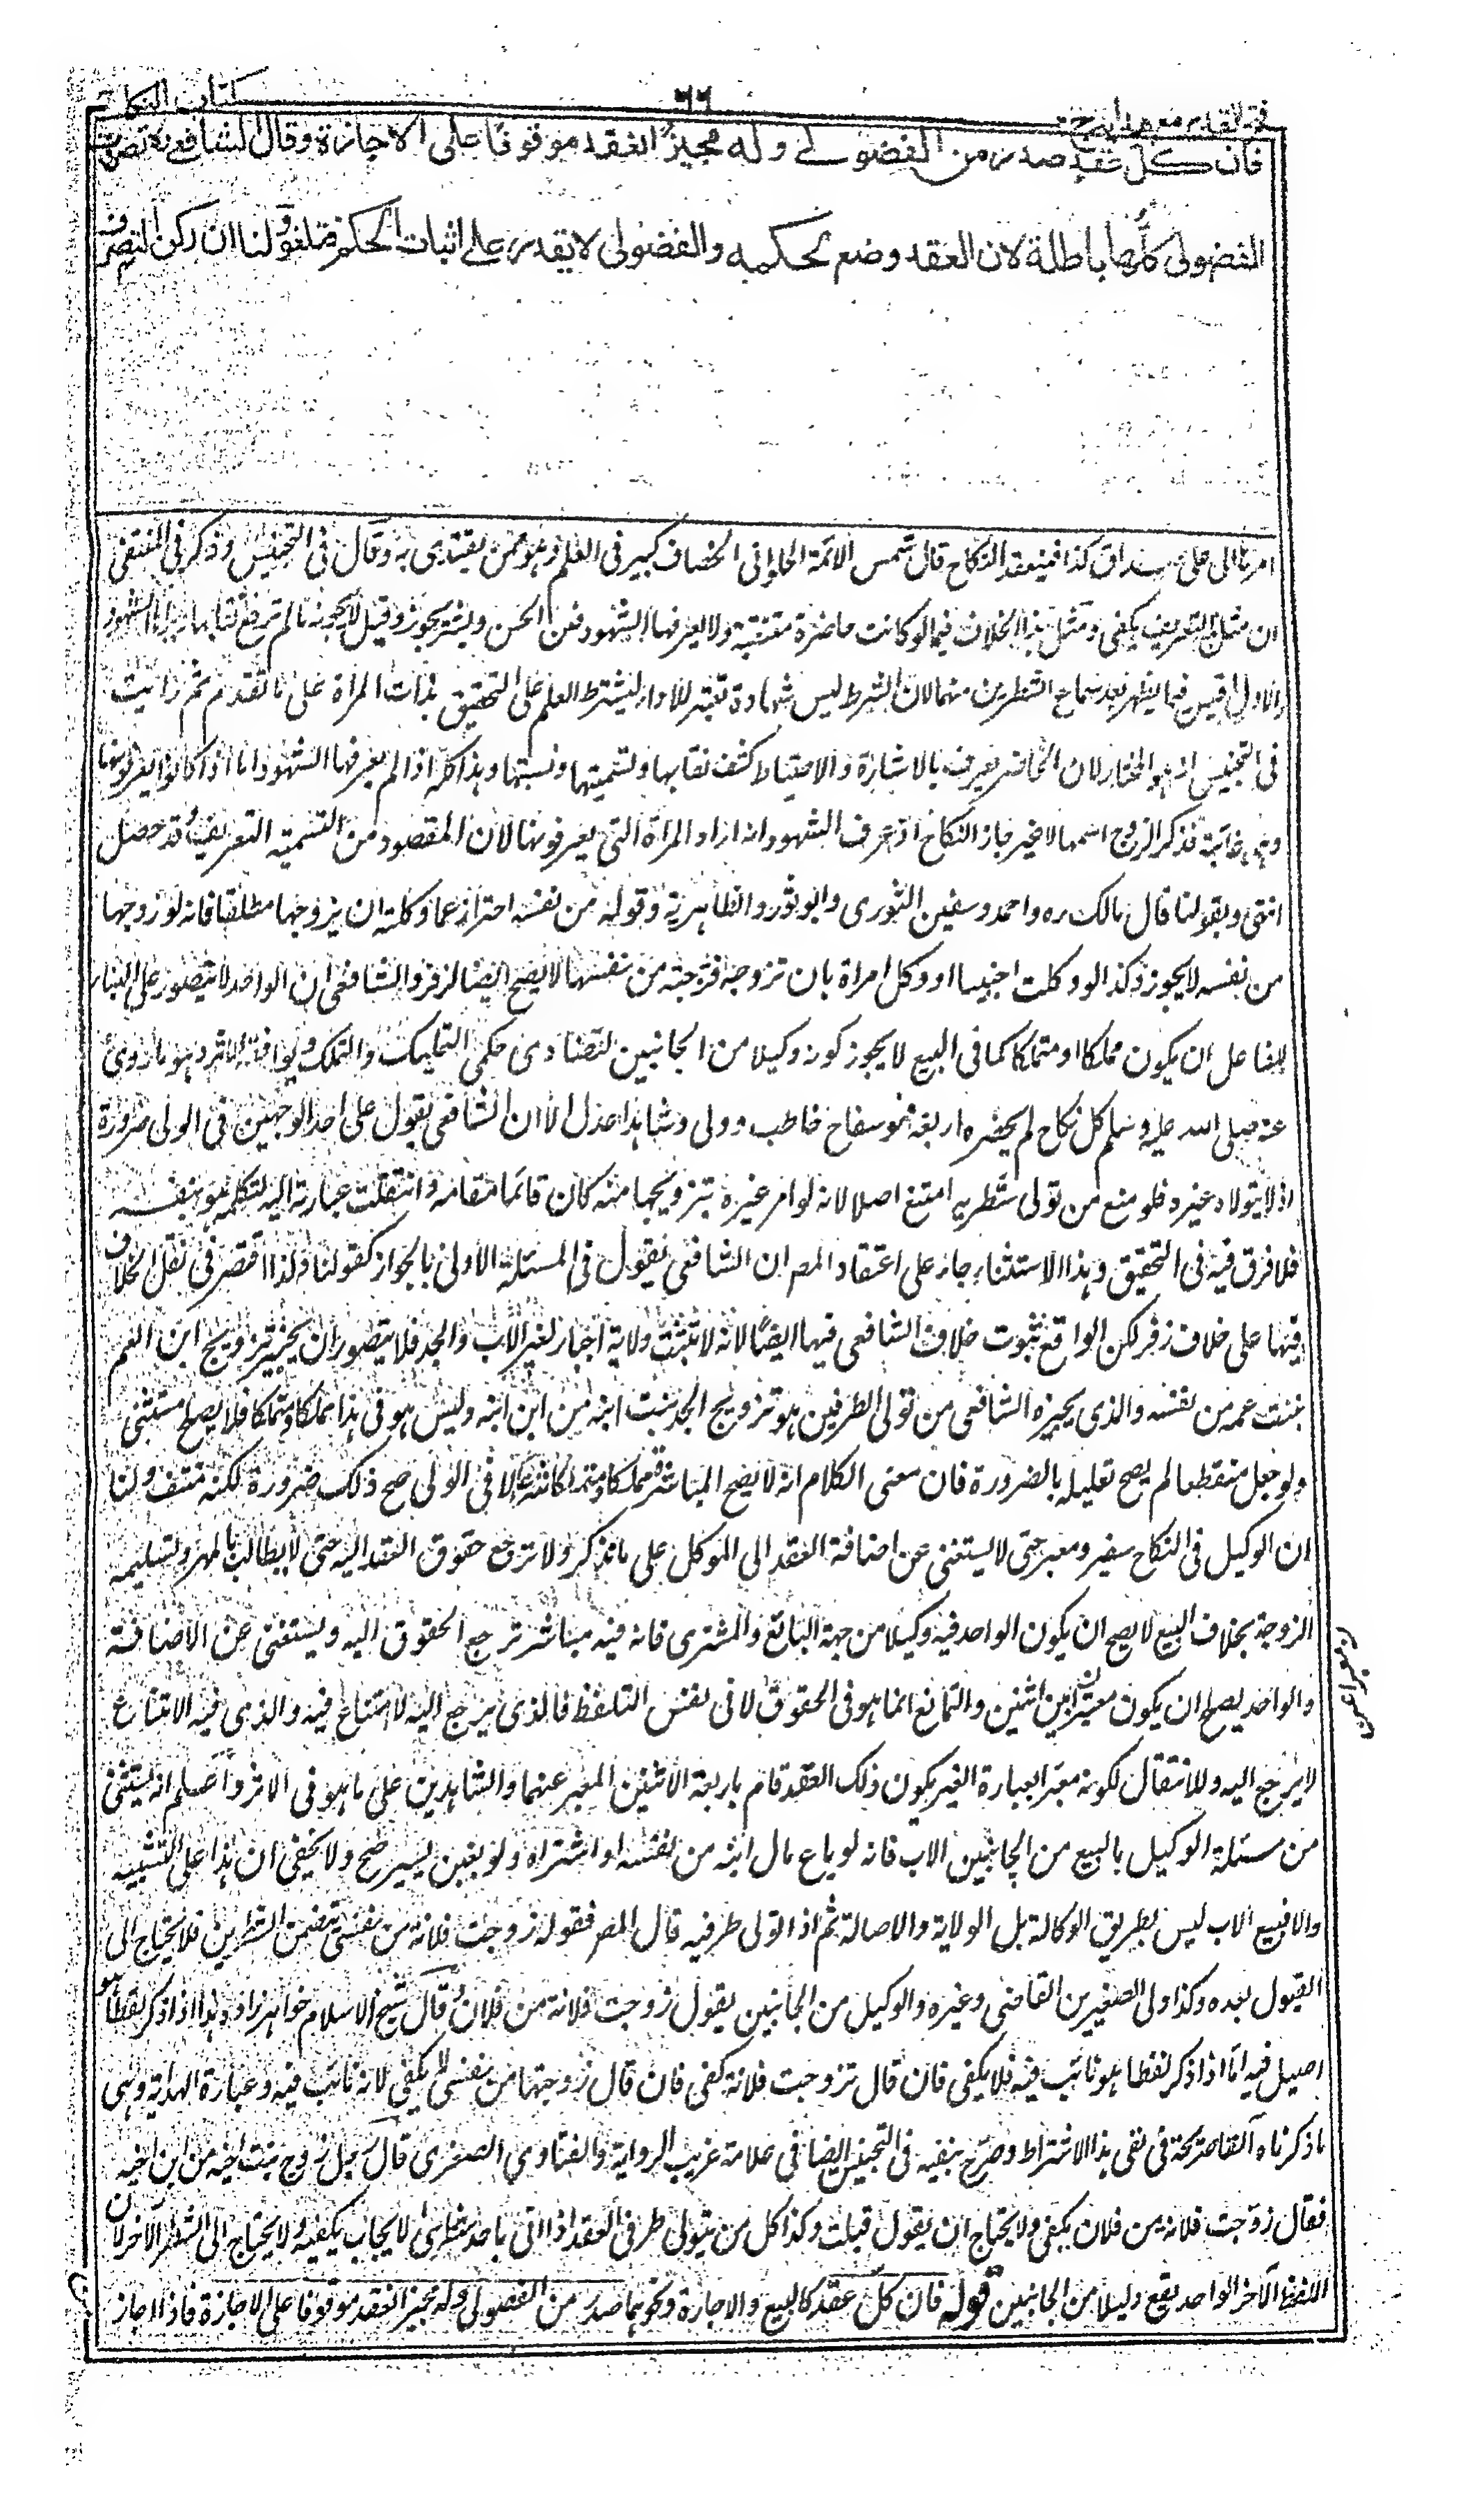 كتاب النكاح
٦٦
فتح القدير مع هداية ج
فان كل عقد صدر من الفضولى وله مجيز انعقد موقوفا على الاجازة وقال الشافعى ره تصرفات
الفضولى كلها باطلة لان العقد وضع لحكمه والفضولى لا يقدر على اثبات الحكم فتلغو ولنا ان ركن التصرف
امرها الى على صداق كذا فينعقد النكاح قال شمس الائمة الحلوانى الخصاف كبير فى العلم وهو ممن يقتدى به وقال فى التجنيس وذكر فى المنتقى
ان مثل التعريف يكفى ومثل هذا الخلاف فيما لو كانت حاضرة متنقبة ولا يعرفها الشهود فعن الحسن وبشر يجوز وقيل لا يجوز ما لم ترفع نقابها ويراها الشهود
والاول اقيس فيما يظهر بعد سماع الشطرين منهما لان الشرط ليس شهادة تعتبر للاداء ليشترط العلم على التحقيق بذات المراة على ما تقدم ثم رايت
فى التجنيس انه هو المختار لان الحاضر يعرف بالاشارة والاحتياط كشف نقابها وتسميتها ونسبتها وهذا كله اذا لم يعرفها الشهود اما اذا كانوا يعرفونها
وهى غائبة فذكر الزوج اسمها لا غير جاز النكاح اذ عرف الشهود انه اراد المراة التى يعرفونها لان المقصود من التسمية التعريف وقد حصل
انتهى وبقولنا قال مالك ره واحمد وسفين الثورى وابو ثور والظاهرية وقوله من نفسه احتراز عما وكلته ان يزوجها مطلقا فانه لو زوجها
من نفسه لا يجوز وكذا لو وكلت اجنبيا او وكل امراة بان تزوجه فزوجته من نفسها لا يصح ايضا لزفر والشافعى ان الواحد لا يتصور على البناء
للفاعل ان يكون مملكا او متملكا كما فى البيع لا يجوز كونه وكيلا من الجانبين لتضادى حكمى التمليك والتملك ويوافقه الاثر وهو ما روى
عنه صلى الله عليه وسلم كل نكاح لم يحضره اربعة فهو سفاح خاطب وولى وشاهدا عدل الا ان الشافعى يقول على احد الوجهين فى الولى ضرورة
اذ لا يتولاه غيره فلو منع من تولى شطريه امتنع اصلا لانه لو امر غيره بتزويجها منه كان قائما مقامه وانتقلت عبارته اليه لتكلمه هو بنفسه
فلا فرق فيه فى التحقيق وهذا الاستثناء جاء على اعتقاد المصر ان الشافعى يقول فى المسئلة الاولى بالجواز كقولنا ولذا اقتصر فى نقل الخلاف
فيها على خلاف زفر لكن الواقع ثبوت خلاف الشافعى فيها ايضا لانه لا تثبت ولاية اجبار لغير الاب والجد فلا يتصور ان يجيز تزويج ابن العم
بنت عمه من نفسه والذى يجيزه الشافعى من تولى الطرفين هو تزويج الجد بنت ابنه من ابن ابنه وليس هو فى هذا مملكا ومتملكا فلا يصلح مستثنى
ولو جعل منقطعا لم يصح تعليله بالضرورة فان معنى الكلام انه لا يصح المباشر مملكا ومتملكا الا فى الولى صح ذلك ضرورة لكنه منتف ولنا
ان الوكيل فى النكاح سفير ومعبر حتى لا يستغنى عن اضافة العقد الى الموكل على ما نذكر ولا ترجع حقوق العقد اليه حتى لا يطالب بالمهر وتسليم
الزوجة بخلاف البيع لا يصح ان يكون الواحد فيه وكيلا من جهة البائع والمشترى فانه فيه مباشر ترجع الحقوق اليه ويستغنى عن الاضافة
والواحد يصلح ان يكون معبرا عن اثنين والتمانع انما هو فى الحقوق لا فى نفس التلفظ فالذى يرجع اليه لا امتناع فيه والذى فيه الامتناع
لا يرجع اليه وللانتقال لكونه معبرا لعبارة الغير يكون ذلك العقد قام باربعة الاثنين المعبر عنهما والشاهدين على ما هو فى الاثر واعلم انه يستثنى
من مسئلة الوكيل بالبيع من الجانبين الاب فانه لو باع مال ابنه من نفسه او اشتراه ولو بغبن يسير صح ولا يخفى ان هذا على التشبيه
والا فبيع الاب ليس بطريق الوكالة بل الولاية والاصالة ثم اذا تولى طرفيه قال المصر فقوله زوجت فلانة من نفسى يتضمن الشطرين فلا يحتاج الى
القبول بعده وكذا ولى الصغيرين القاضى وغيره والوكيل من الجانبين يقول زوجت فلانة من فلان وقال شيخ الاسلام خواهرزاده وهذا اذا ذكر لفظا هو
اصيل فيه اما اذا ذكر لفظا هو نائب فيه فلا يكفى فان قال تزوجت فلانة كفى فان قال زوجتها من نفسى لا يكفى لانه نائب فيه وعبارة الهداية وهى
ما ذكرناه آنفا صريحة فى نفى هذا الاشتراط وصرح بنفيه فى التجنيس ايضا فى علامة غريب الرواية والفتاوى الصغرى قال رجل زوج بنت اخيه من ابن اخيه
فقال زوجت فلانة من فلان يكفى ولا يحتاج ان يقول قبلت وكذا كل من يتولى طرفى العقد اذا اتى باحد شطرى الايجاب يكفيه ولا يحتاج الى الشطر الآخر لان
اللفظ الآخر الواحد يقع دليلا من الجانبين قوله فان كل عقد كالبيع والاجارة ونحوهما صدر من الفضولى وله مجيز انعقد موقوفا على الاجازة فاذا اجاز